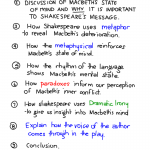 ① DISCUSSION OF MACBETH'S STATE
OF MIND AND WHY IT IS
IMPORTANT TO SHAKESPEARE'S MESSAGE.
② How Shakespeare uses metaphor
to reveal Macbeth's deterioration.
③ How the metaphysical reinforces
Macbeth's state of mind.
④ How the rhythm of the language
shows Macbeth's mental state.
⑤ How paradoxes inform our perception
of Macbeth's inner conflict.
⑥ How Shakespeare uses Dramatic Irony
to give us insight into Macbeth's mind
⑦ Explain how the voice of the author
comes through in the play.
⑧ Conclusion.